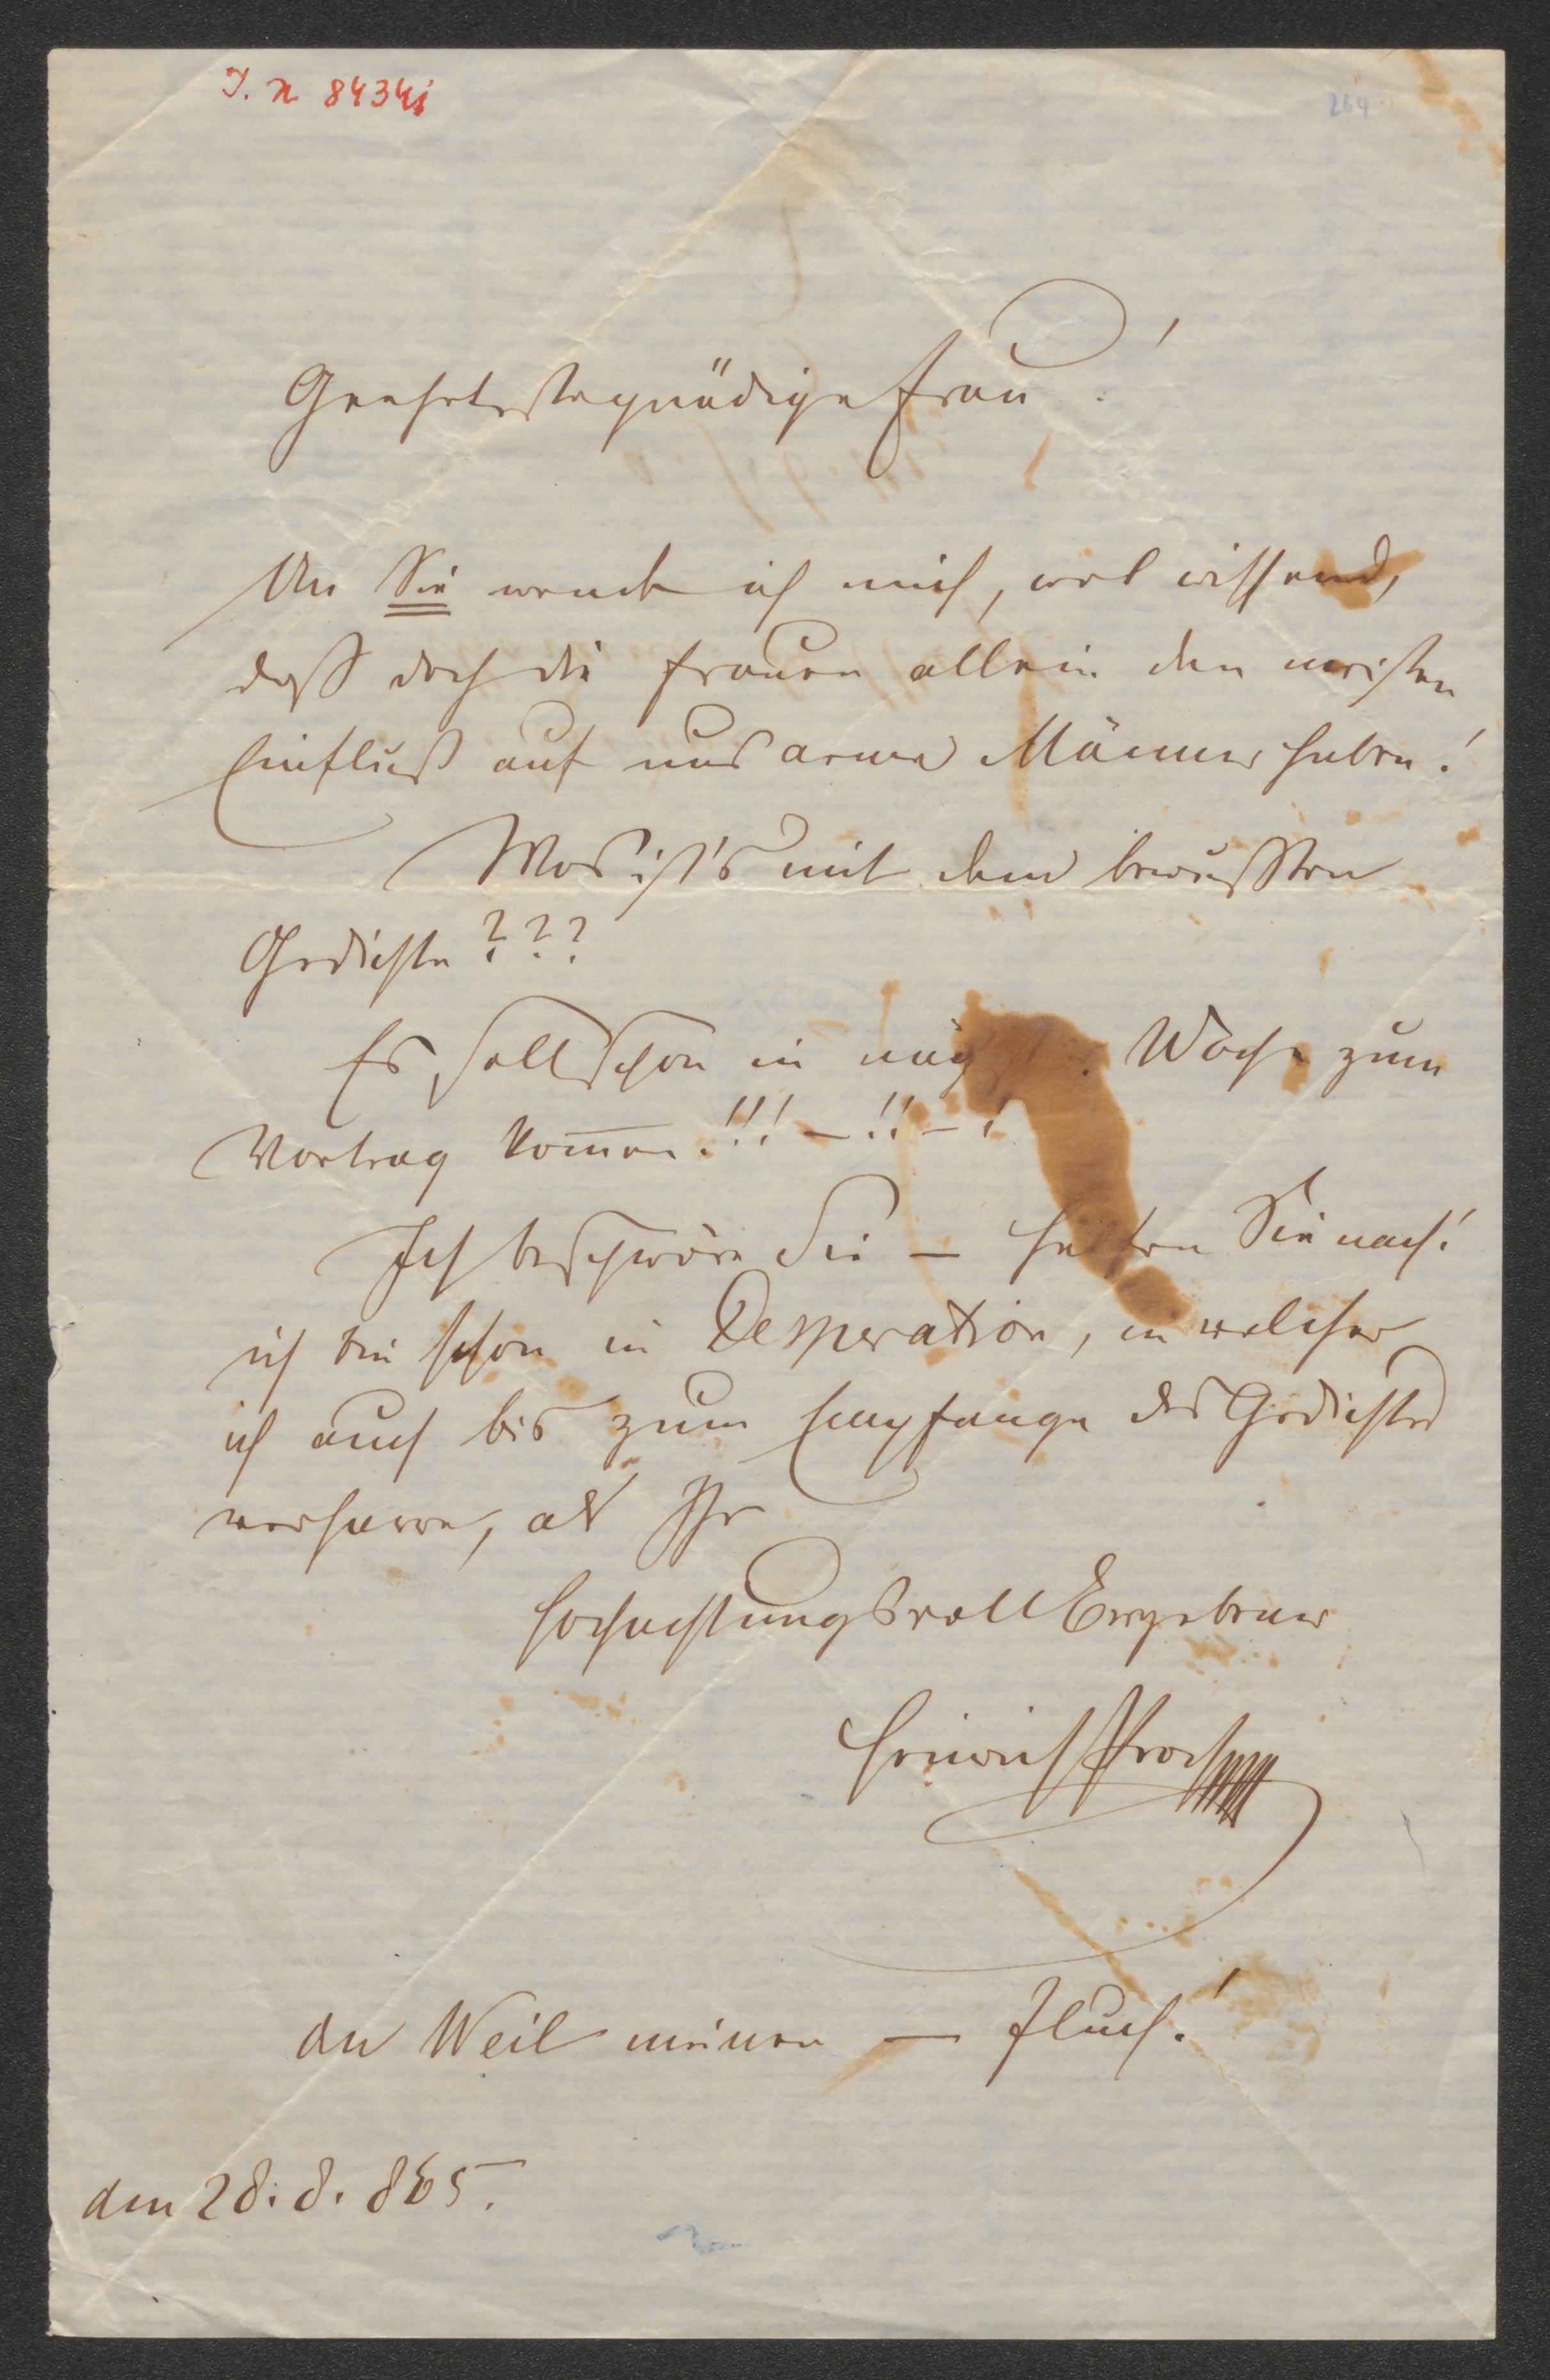 I. N 8434j
264
Geehrteste gnädige Frau!
An Sie wende ich mich, wol wissend,
daß doch die Frauen allein den meisten
Einfluß auf uns arme Männer haben!
Was ist's mit dem bewußten
Gedichte???
Es soll schon in nächster Woche zum
Vortrag kom̅en!!! – !! – !
Ich beschwöre Sie – helfen Sie nach!
ich bin schon in Desperation, in welcher
ich auch bis zum Empfange des Gedichtes
verharre, als Ihr
hochachtungsvoll Ergebener
Heinrich Proch
an Weil meinen – Fluch!
den 28. 8. 865.